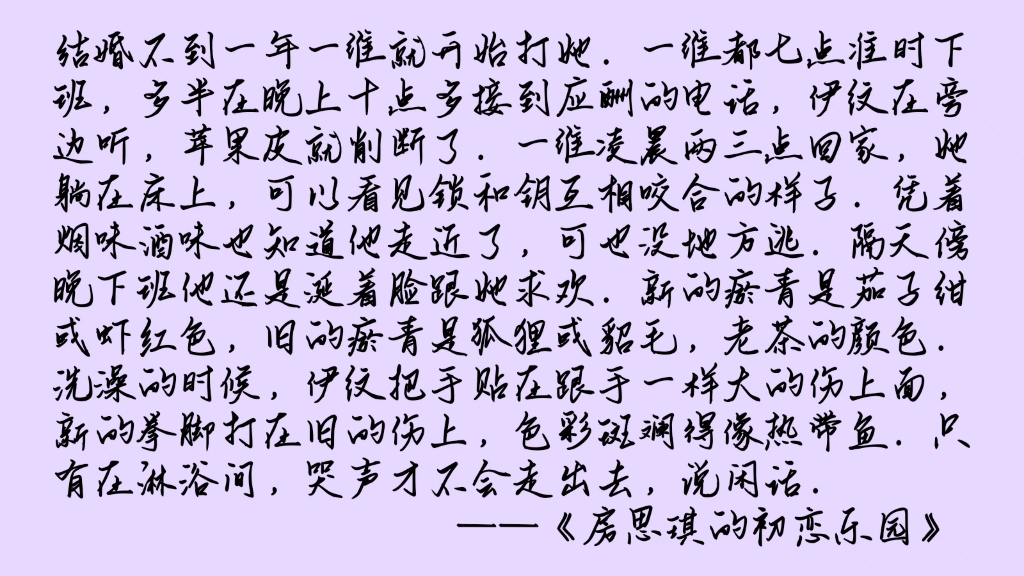 结婚不到一年一维就开始打她．一维都七点准时下
班，多半在晚上十点多接到应酬的电话，伊纹在旁
边听，苹果皮就削断了．一维凌晨两三点回家，她
躺在床上，可以看见锁和钥互相咬合的样子．凭着
烟味酒味也知道他走近了，可也没地方逃．隔天傍
晚下班他还是涎着脸跟她求欢．新的瘀青是茄子绀
或虾红色，旧的瘀青是狐狸或貂毛，老茶的颜色．
洗澡的时候，伊纹把手贴在跟手一样大的伤上面，
新的拳脚打在旧的伤上，色彩斑斓得像热带鱼．只
有在淋浴间，哭声才不会走出去，说闲话．
——《房思琪的初恋乐园》